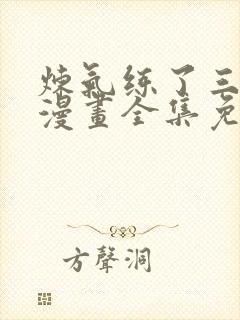 煉氣練了三
漫畫全集免
方聲洞